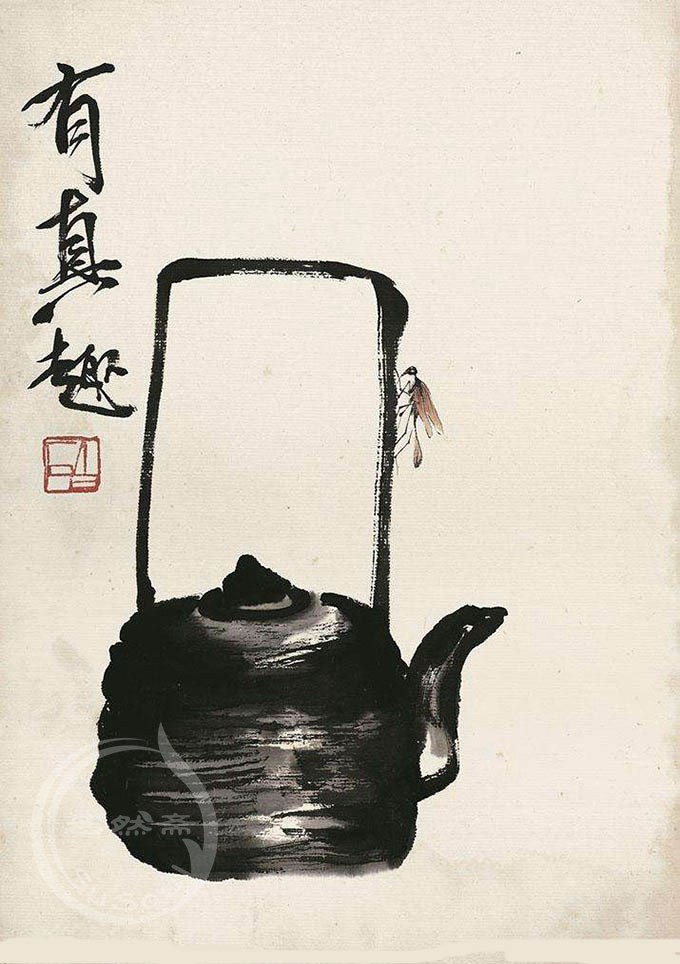 有真趣
然斋